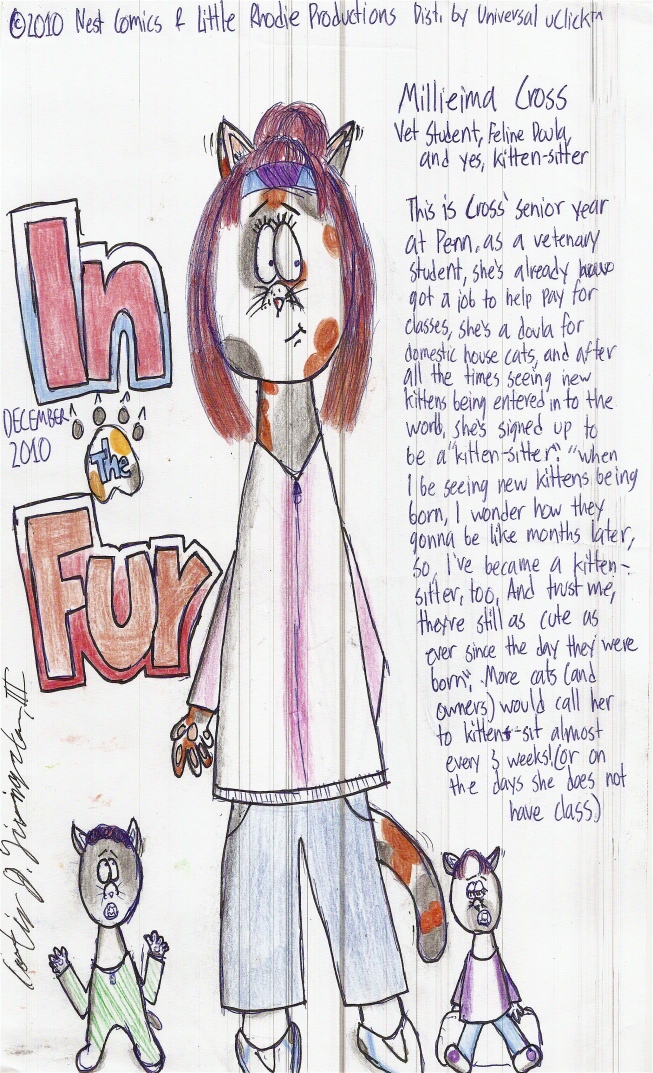 ©2010 Nest Comics & Little Rhodie Productions Dist. by Universal uClick™
Millieima Cross
Vet Student, Feline Doula,
and yes, kitten-sitter
This is Cross' senior year
at Penn, as a vetenary
student, she's already
got a job to help pay for
classes, she's a doula for
domestic house cats, and after
all the times seeing new
kittens being entered into the
world, she's signed up to
be a "kitten-sitter". "When
I be seeing new kittens being
born, I wonder how they
gonna be like months later,
so, I've became a kitten-
sitter, too. And trust me,
they're still as cute as
ever since the day they were
born". More cats (and
owners) would call her
to kitten-sit almost
every 3 weeks! (or on
the days she does not
have class)
In
The
Fur
DECEMBER
2010